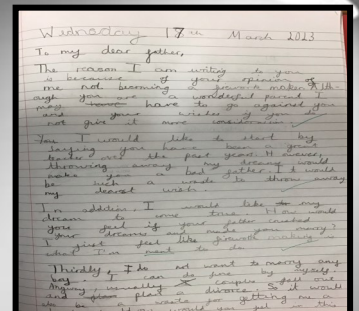 Wednesday 17th March 2023
To my dear father,
The reason I am writing to you
is because of your opinion of
me not becoming a firework maker. Alth-
ough you are a wonderful parent I
may have to go against you
and your wishes if you do
not give it more consideration.
You I would like to start by
saying you have been a great
teacher over the past year. However,
throwing away my dreams would
make you a bad father. It would
be such a waste to throw away
my dearest wish.
In addition, I would like to my
dream to come true. How would
you feel if your father crushed
your dreams and made you marry?
I just feel like firework making is
what I'm meant to do.
Thirdly, I do not want to marry any
boy I can do fine by myself.
Anyway, usually couples fall out
and plan a divorce, so it would
be a waste for getting me a
would you feel if the